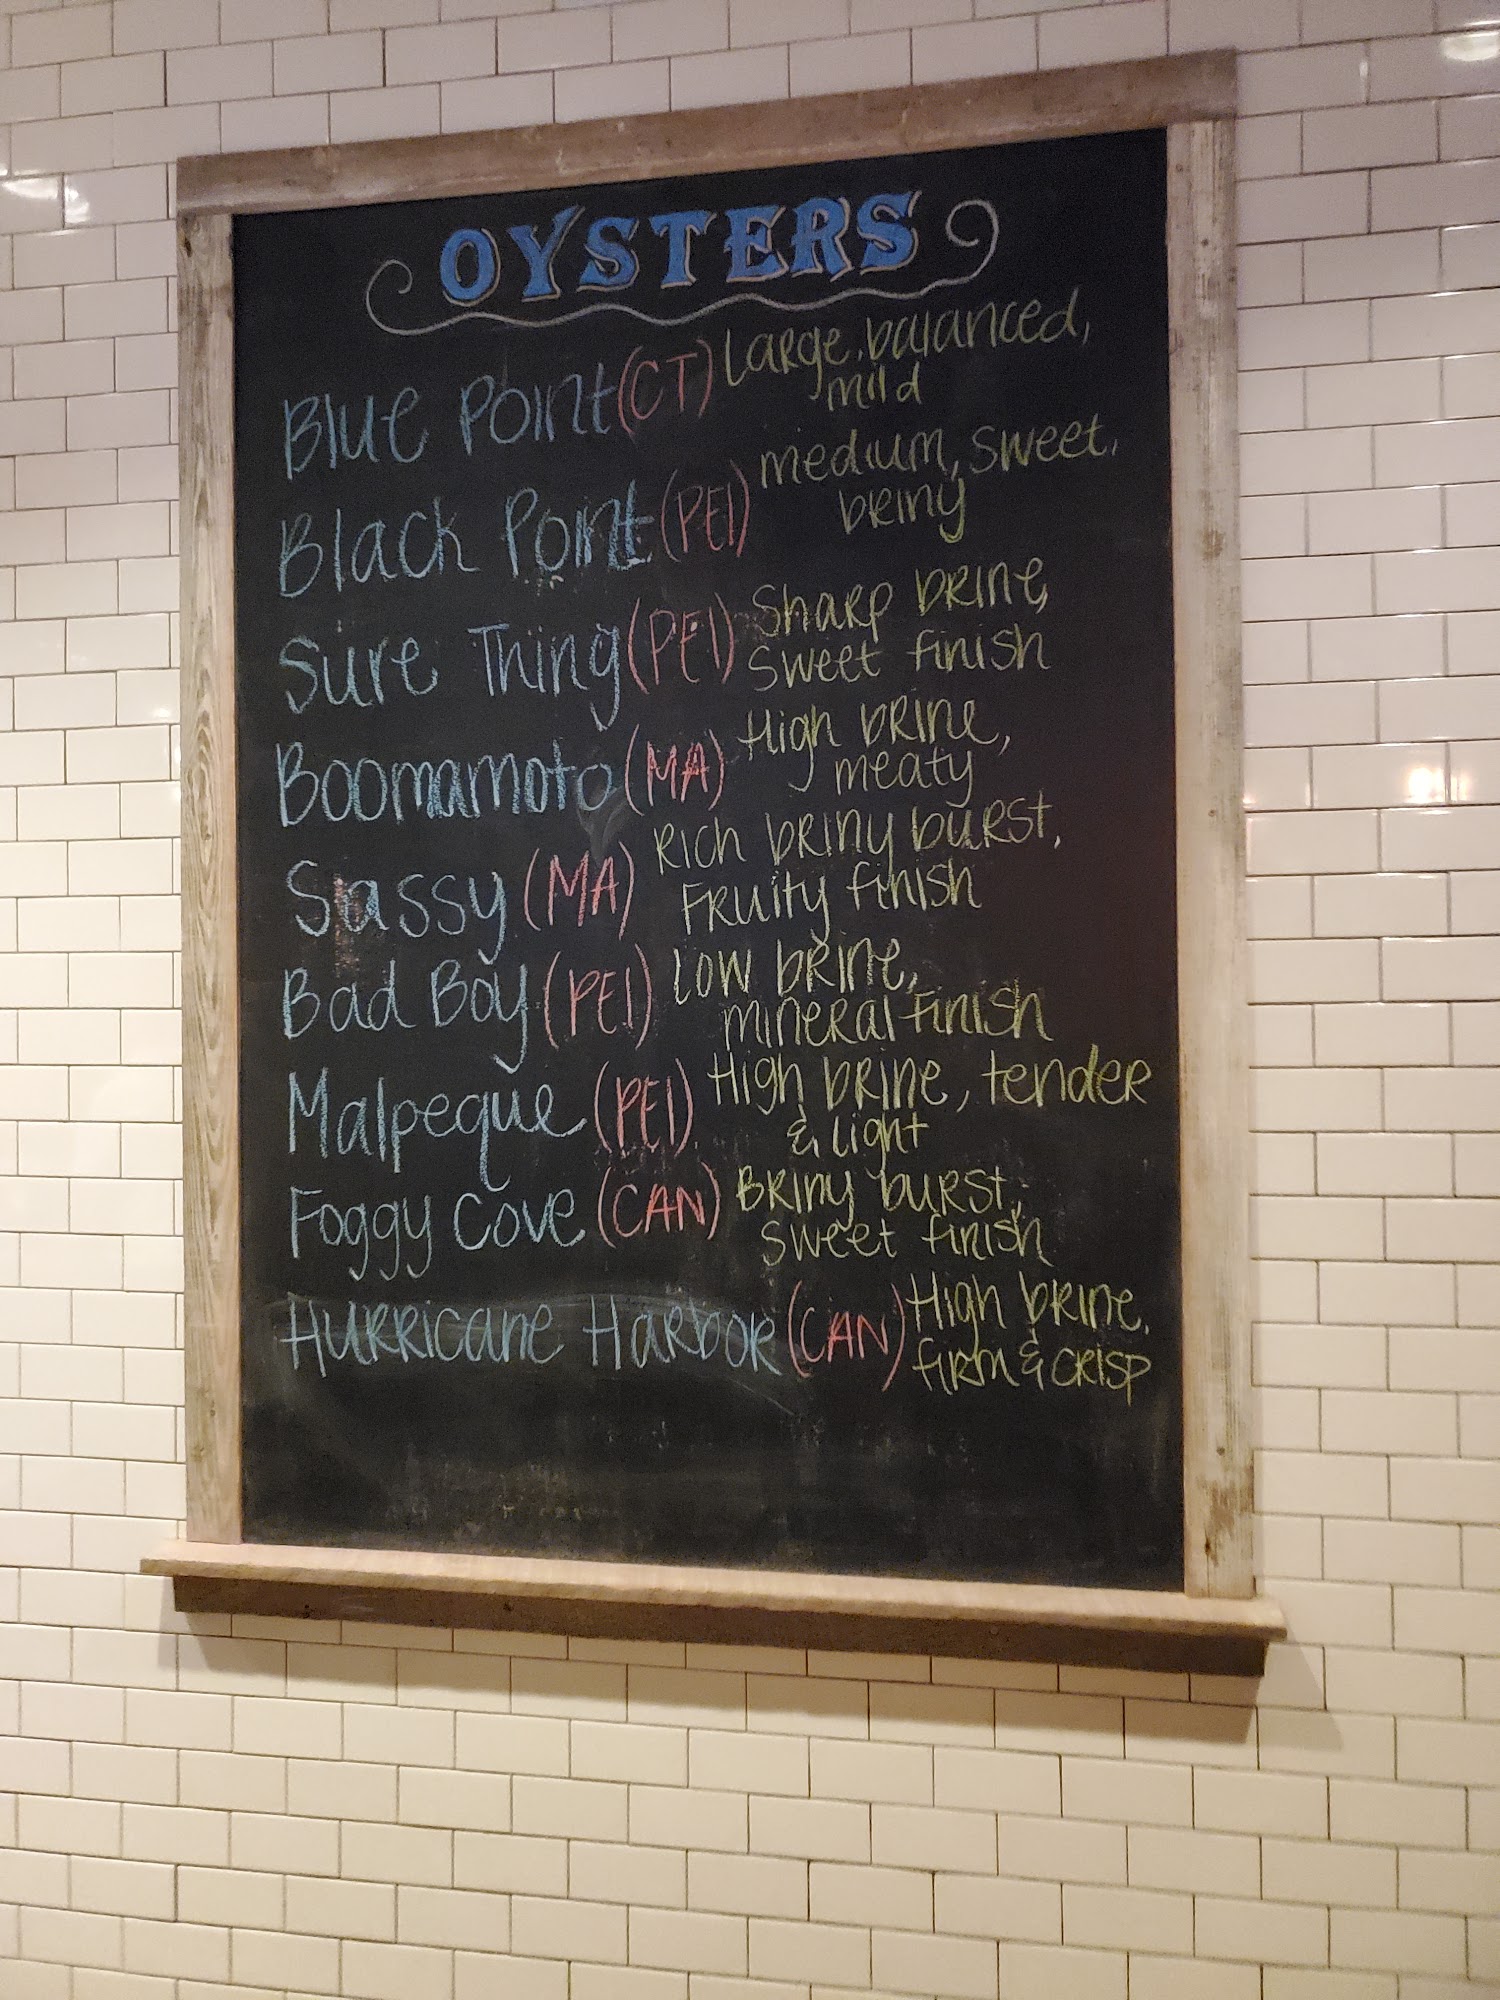 OYSTERS
Blue Point (CT) Large, balanced,
mild
Black Point (PEI) medium, sweet,
briny
Sure Thing (PEI) Sharp brine,
Sweet finish
Boomamoto (MA) High brine,
meaty
Sassy (MA) Rich briny burst,
Fruity finish
Bad Boy (PEI) Low brine,
mineral finish
Malpeque (PEI) High brine, tender
& light
Foggy Cove (CAN) Briny burst,
sweet finish
Hurricane Harbor (CAN) High brine,
firm & crisp